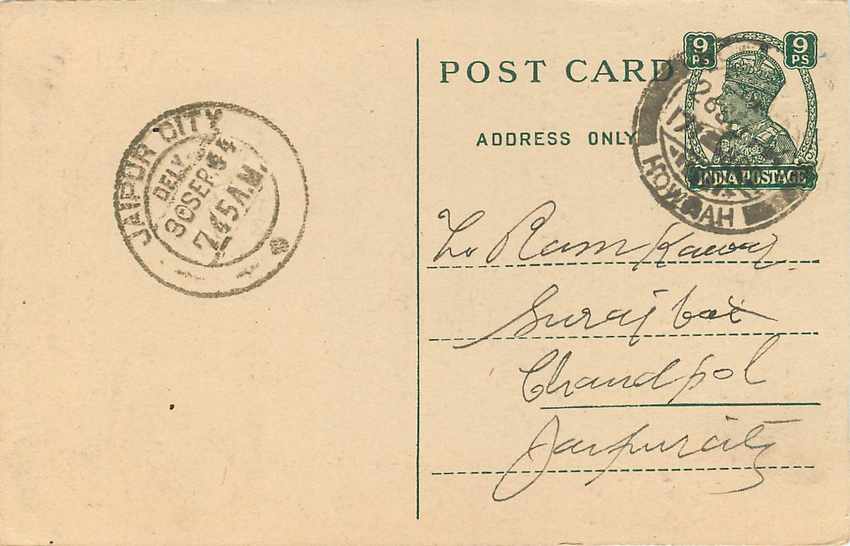 9 PS 9 PS
POST CARD
ADDRESS ONLY
INDIA POSTAGE
HOWRAH
JAIPUR CITY
DELY.
30 SEP 54
7.45 A.M.
To Ram
Suraj bax
Chandpol
Jaipur city